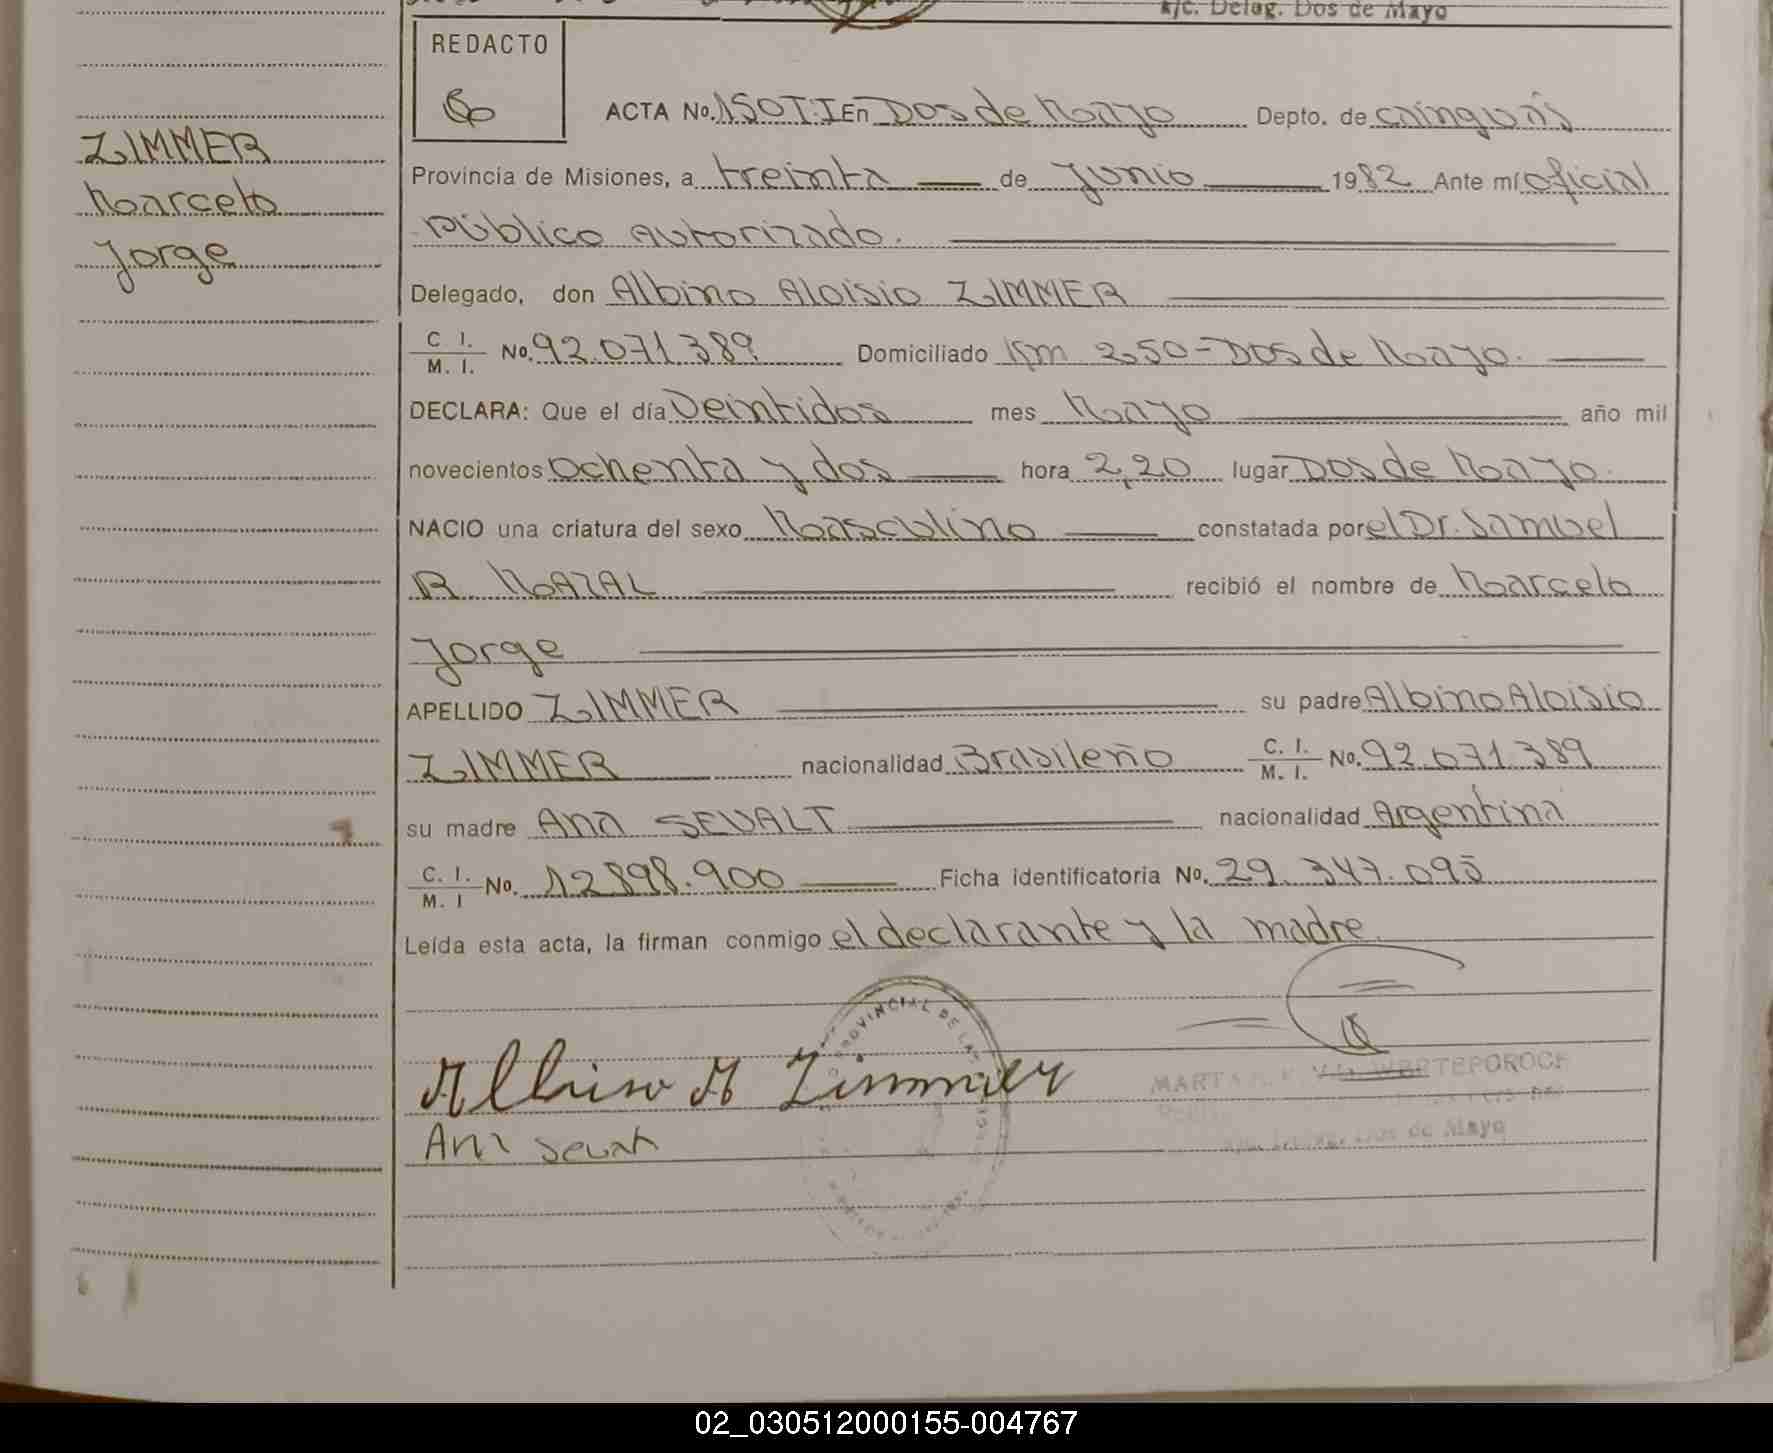 a/c. Deleg. Dos de Mayo
REDACTO
ACTA No. 150T.I En Dos de Mayo Depto. de Cainguás
ZIMMER
Marcelo
Jorge
Provincia de Misiones, a treinta de Junio 1982 Ante mí oficial
Público autorizado.
Delegado, don Albino Aloisio ZIMMER
C. I.
M. I. No. 92.071.389 Domiciliado Km 250-Dos de Mayo.
DECLARA: Que el día Veintidos mes Mayo año mil
novecientos ochenta y dos hora 2,20 lugar Dos de Mayo.
NACIO una criatura del sexo Masculino constatada por el Dr. Samuel
R. MAZAL recibió el nombre de Marcelo
Jorge
APELLIDO ZIMMER su padre Albino Aloisio
ZIMMER nacionalidad Brasileño C. I.
M. I. No. 92.071.389
su madre Ana SEVALT nacionalidad Argentina
C. I.
M. I No. 12898.900 Ficha identificatoria No. 29.347.095
Leída esta acta, la firman conmigo el declarante y la madre.
PROVINCIAL DE LAS
Albino A Zimmer
MARTA
WERTEPOROCH
Ana Sevalt
Deleg. Dos de Mayo
02_030512000155-004767